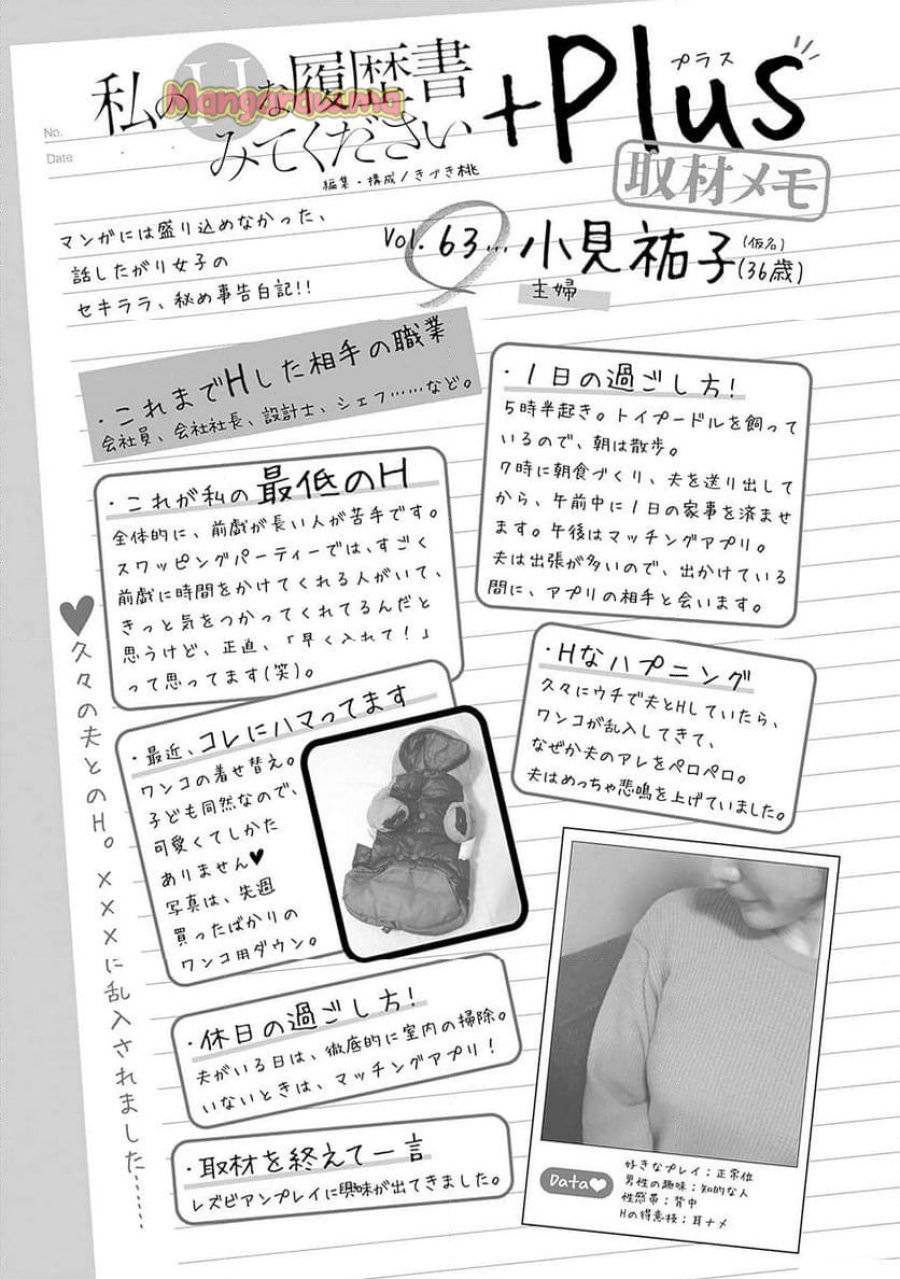 No.
Date
私のHな履歴書
みてください
Mangarauma
+Plus
プラス
編集・構成/きづき桃
取材メモ
マンガには盛り込めなかった、
話したがり女子の
セキララ、秘め事告白記!!
Vol. 63… 小見祐子(仮名)(36歳)
主婦
・これまでHした相手の職業
会社員、会社社長、設計士、シェフ……など。
・1日の過ごし方!
5時半起き。トイプードルを飼って
いるので、朝は散歩。
7時に朝食づくり、夫を送り出して
から、午前中に1日の家事を済ませ
ます。午後はマッチングアプリ。
夫は出張が多いので、出かけている
間に、アプリの相手と会います。
・これが私の最低のH
全体的に、前戯が長い人が苦手です。
スワッピングパーティーでは、すごく
前戯に時間をかけてくれる人がいて、
きっと気をつかってくれてるんだと
思うけど、正直、「早く入れて!」
って思ってます(笑)。
・Hなハプニング
久々にウチで夫とHしていたら、
ワンコが乱入してきて、
なぜか夫のアレをペロペロ。
夫はめっちゃ悲鳴を上げていました。
♥久々の夫とのH。×××に乱入されました……
・最近、コレにハマってます
ワンコの着せ替え。
子ども同然なので、
可愛くてしかた
ありません♥
写真は、先週
買ったばかりの
ワンコ用ダウン。
・休日の過ごし方!
夫がいる日は、徹底的に室内の掃除。
いないときは、マッチングアプリ!
・取材を終えて一言
レズビアンプレイに興味が出てきました。
Data♥
好きなプレイ:正常位
男性の趣味:知的な人
性感帯:背中
Hの得意技:耳ナメ